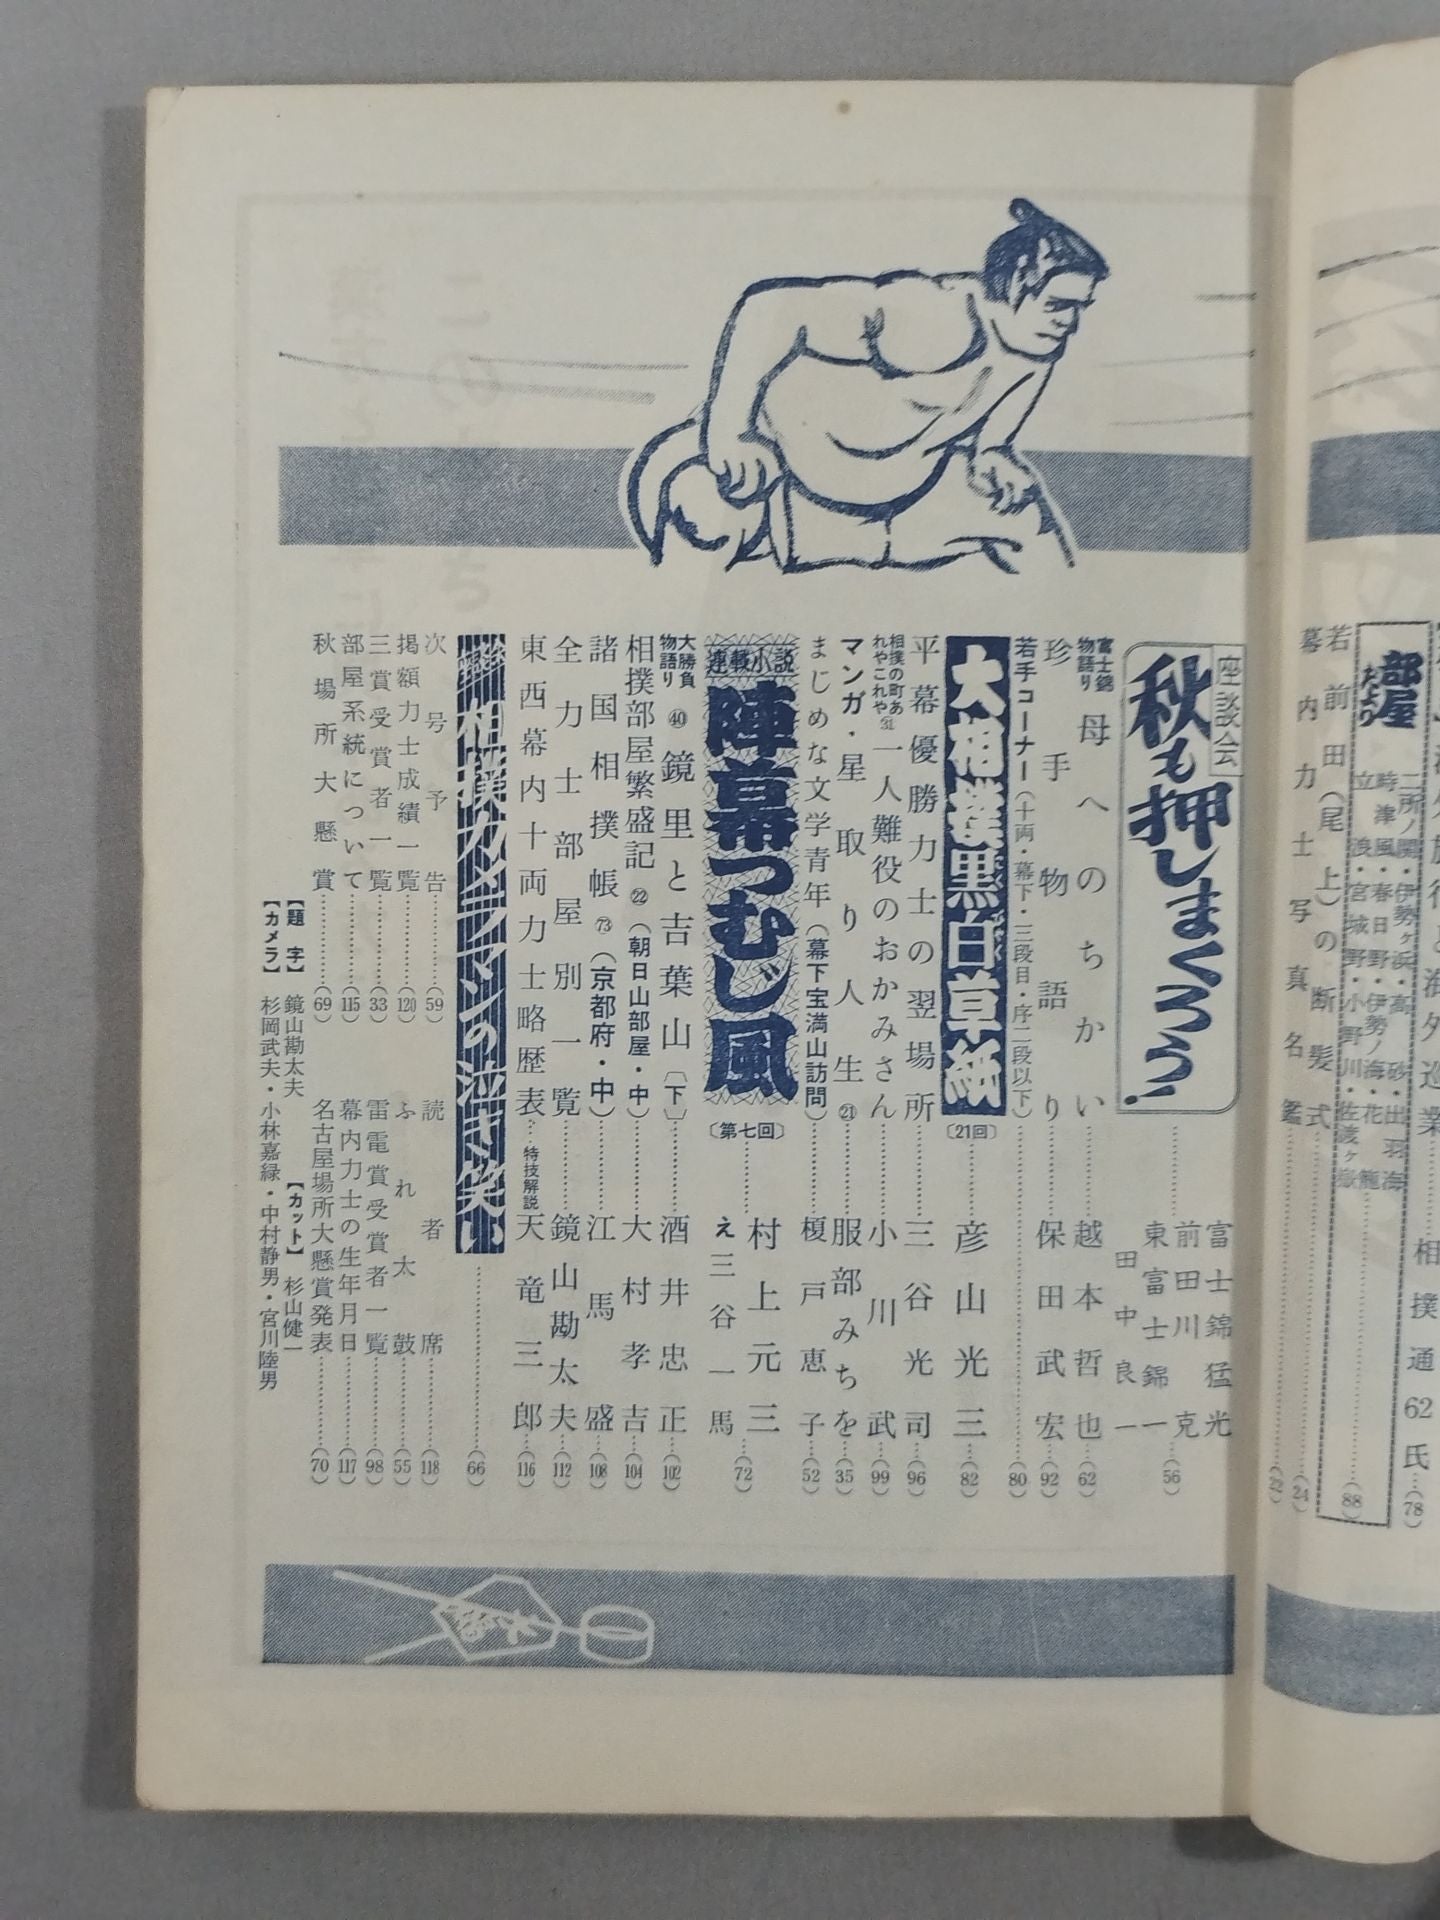 相撲通62氏…(78)
部屋だより
二所ノ関・伊勢ヶ浜・高砂・出羽海
時津風・春日野・伊勢ノ海・花籠
立浪・宮城野・小野川・佐渡ヶ嶽
(88)
若前田(尾上)の断髪式…(24)
幕内力士写真名鑑…(22)
座談会
秋も押しまくろう!
富士錦猛光
前田川克
東富士錦一
田中良一
…(56)
富士錦物語り
母へのちかい…越本哲也…(62)
珍手物語り…保田武宏…(92)
若手コーナー(十両・幕下・三段目・序二段以下)…(80)
大相撲黒白草紙〔21回〕…彦山光三…(82)
平幕優勝力士の翌場所…三谷光司…(96)
相撲の町あれやこれや㉛
一人難役のおかみさん…小川武…(99)
マンガ・星取り人生㉑…服部みちを…(35)
まじめな文学青年(幕下宝満山訪問)…榎戸恵子…(52)
連載小説
陣幕つむじ風〔第七回〕…村上元三
え 三谷一馬
…(72)
大勝負物語り㊵
鏡里と吉葉山〔下〕…酒井忠正…(102)
相撲部屋繁盛記㉒(朝日山部屋・中)…大村孝吉…(104)
諸国相撲帳(73)(京都府・中)…江馬盛…(108)
全力士部屋別一覧…鏡山勘太夫…(112)
東西幕内十両力士略歴表…特技解説 天竜三郎…(116)
相撲カメラマンの泣き笑い…(66)
次号予告…(59)
読者席…(118)
掲額力士成績一覧…(120)
ふれ太鼓…(55)
三賞受賞者一覧…(33)
雷電賞受賞者一覧…(98)
部屋系統について…(115)
幕内力士の生年月日…(117)
秋場所大懸賞…(69)
名古屋場所大懸賞発表…(70)
【題字】鏡山勘太夫 【カット】杉山健一
【カメラ】杉岡武夫・小林嘉緑・中村静男・宮川陸男